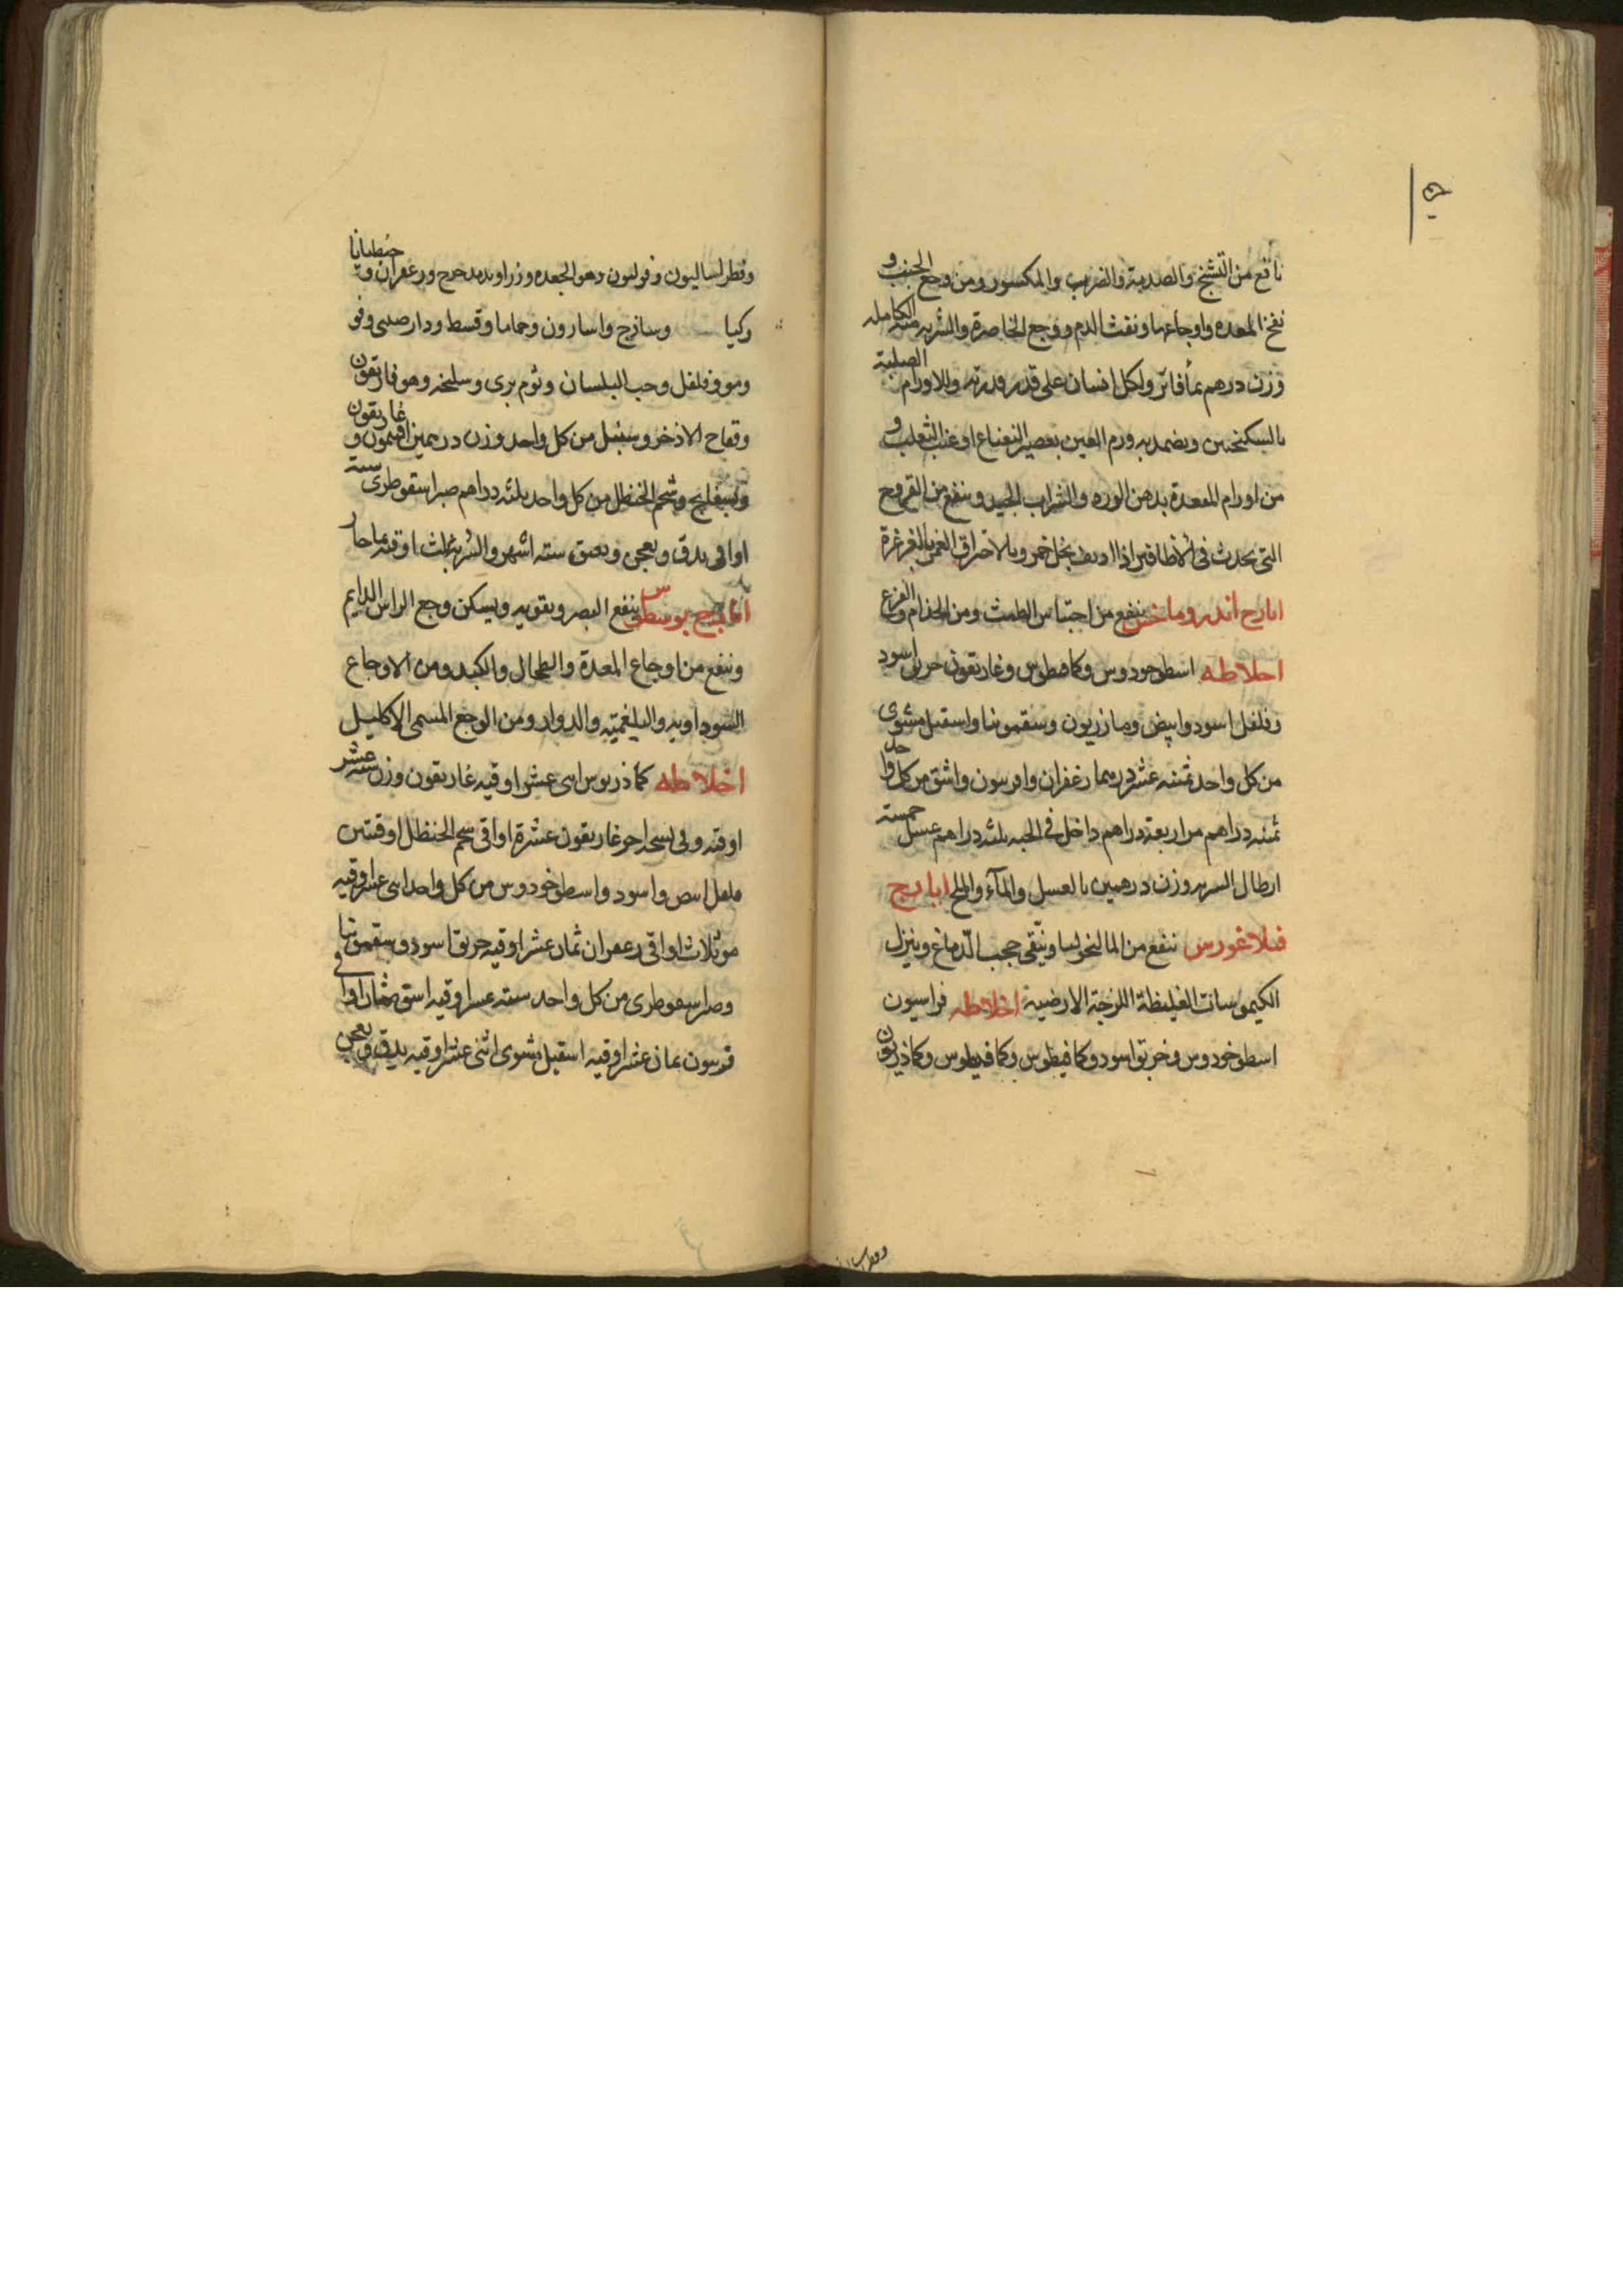 نافع من التشنج والصدمة والضرب والمكسور ومن وجع الجنب و
نفخ المعده واوجاعها ونفث الدم ووجع الخاصرة والشربه منه الكامله
وزن درهم بمأ فاتر ولكل انسان على قدر قدرته وللاورام الصلبة
بالسكنجبين ويضمد به ورم العين بعصير النعناع او عنب الثعلب و
من اورام المعدة بدهن الورد والشراب الجيد وينفع من القروح
التى تحدث فى الاظافير اذا اديف بخل خمر وبالاحتراق بالغرغرة
ايارج اندروماخس ينفع من احتباس الطمث ومن الجذام والفزع
اخلاطه اسطوخودوس وكمافيطوس وغاريقون خربق اسود
وفلفل اسود وابيض ومازريون وسقمونيا واسقيل مشوى
من كل واحد ثمنيه عشر درهما زعفران وافرسون واشق من كل واحد
ثمنيه دراهم مر اربعة دراهم داخل فى الحبه ثلثه دراهم عسل خمسة
ارطال الشربه وزن درهمين بالعسل والمآء والملح ايارج
فيلاغورس ينفع من المالنخوليا وينقى حجب الدماغ وينزل
الكيموسات الغليظة اللزجة الارضية اخلاطه فراسيون
اسطوخودوس وخربق اسود وكمافيطوس وكمافيطوس وكماذريون
وفطراساليون وفوليون وهو الجعده وزراوند مدحرج وزعفران وجنطيانا
ركيا وساذج واسارون وحماما وقسط ودارصينى وفو
ومو وفلفل وحب البلسان وثوم برى وسليخه وهو فاريقون
وفقاح الاذخر وسنبل من كل واحد وزن درهمين افيمون و غاريقون
وبسفايج وشحم الحنظل من كل واحد ثلثه دراهم صبر اسقوطرى ستة
اواقى يدق ويعجن ويعتق ستة اشهر والشربه ثلث اوقيه بماحار
ايارج يوسطوس ينفع البصر ويقويه ويسكن وجع الراس الدايم
وينفع من اوجاع المعدة والطحال والكبد ومن الاوجاع
السوداويه والبلغمية والدوار ومن الوجع المسمى الاكليل
اخلاطه كماذريوس اثنى عشر اوقيه غاريقون وزن ستة عشر
اوقيه وفى نسخه اخر غاريقون عشرة اواقى شحم الحنظل اوقيتين
فلفل ابيض واسود واسطوخودوس من كل واحد اثنى عشر اوقيه
مو ثلاث اواقى زعفران ثمان عشر اوقيه خربق اسود وسقمونيا
وصبر اسقوطرى من كل واحد سته عشر اوقيه اشق ثمان اواقى
فرسون ثمان عشر اوقيه اسقيل مشوى اثنى عشر اوقيه يدق ويعجن